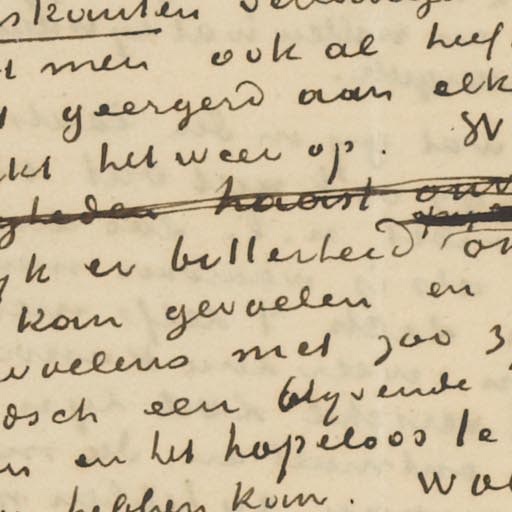 skanten
men ook al heef
geergerd aan elk
kt het weer op. W
gheden haast onv
k er bitterheid on
kan gevoelen en
voelens met zoo z
osch een blyvende
en en het hopeloos le
hebben kan. Wa